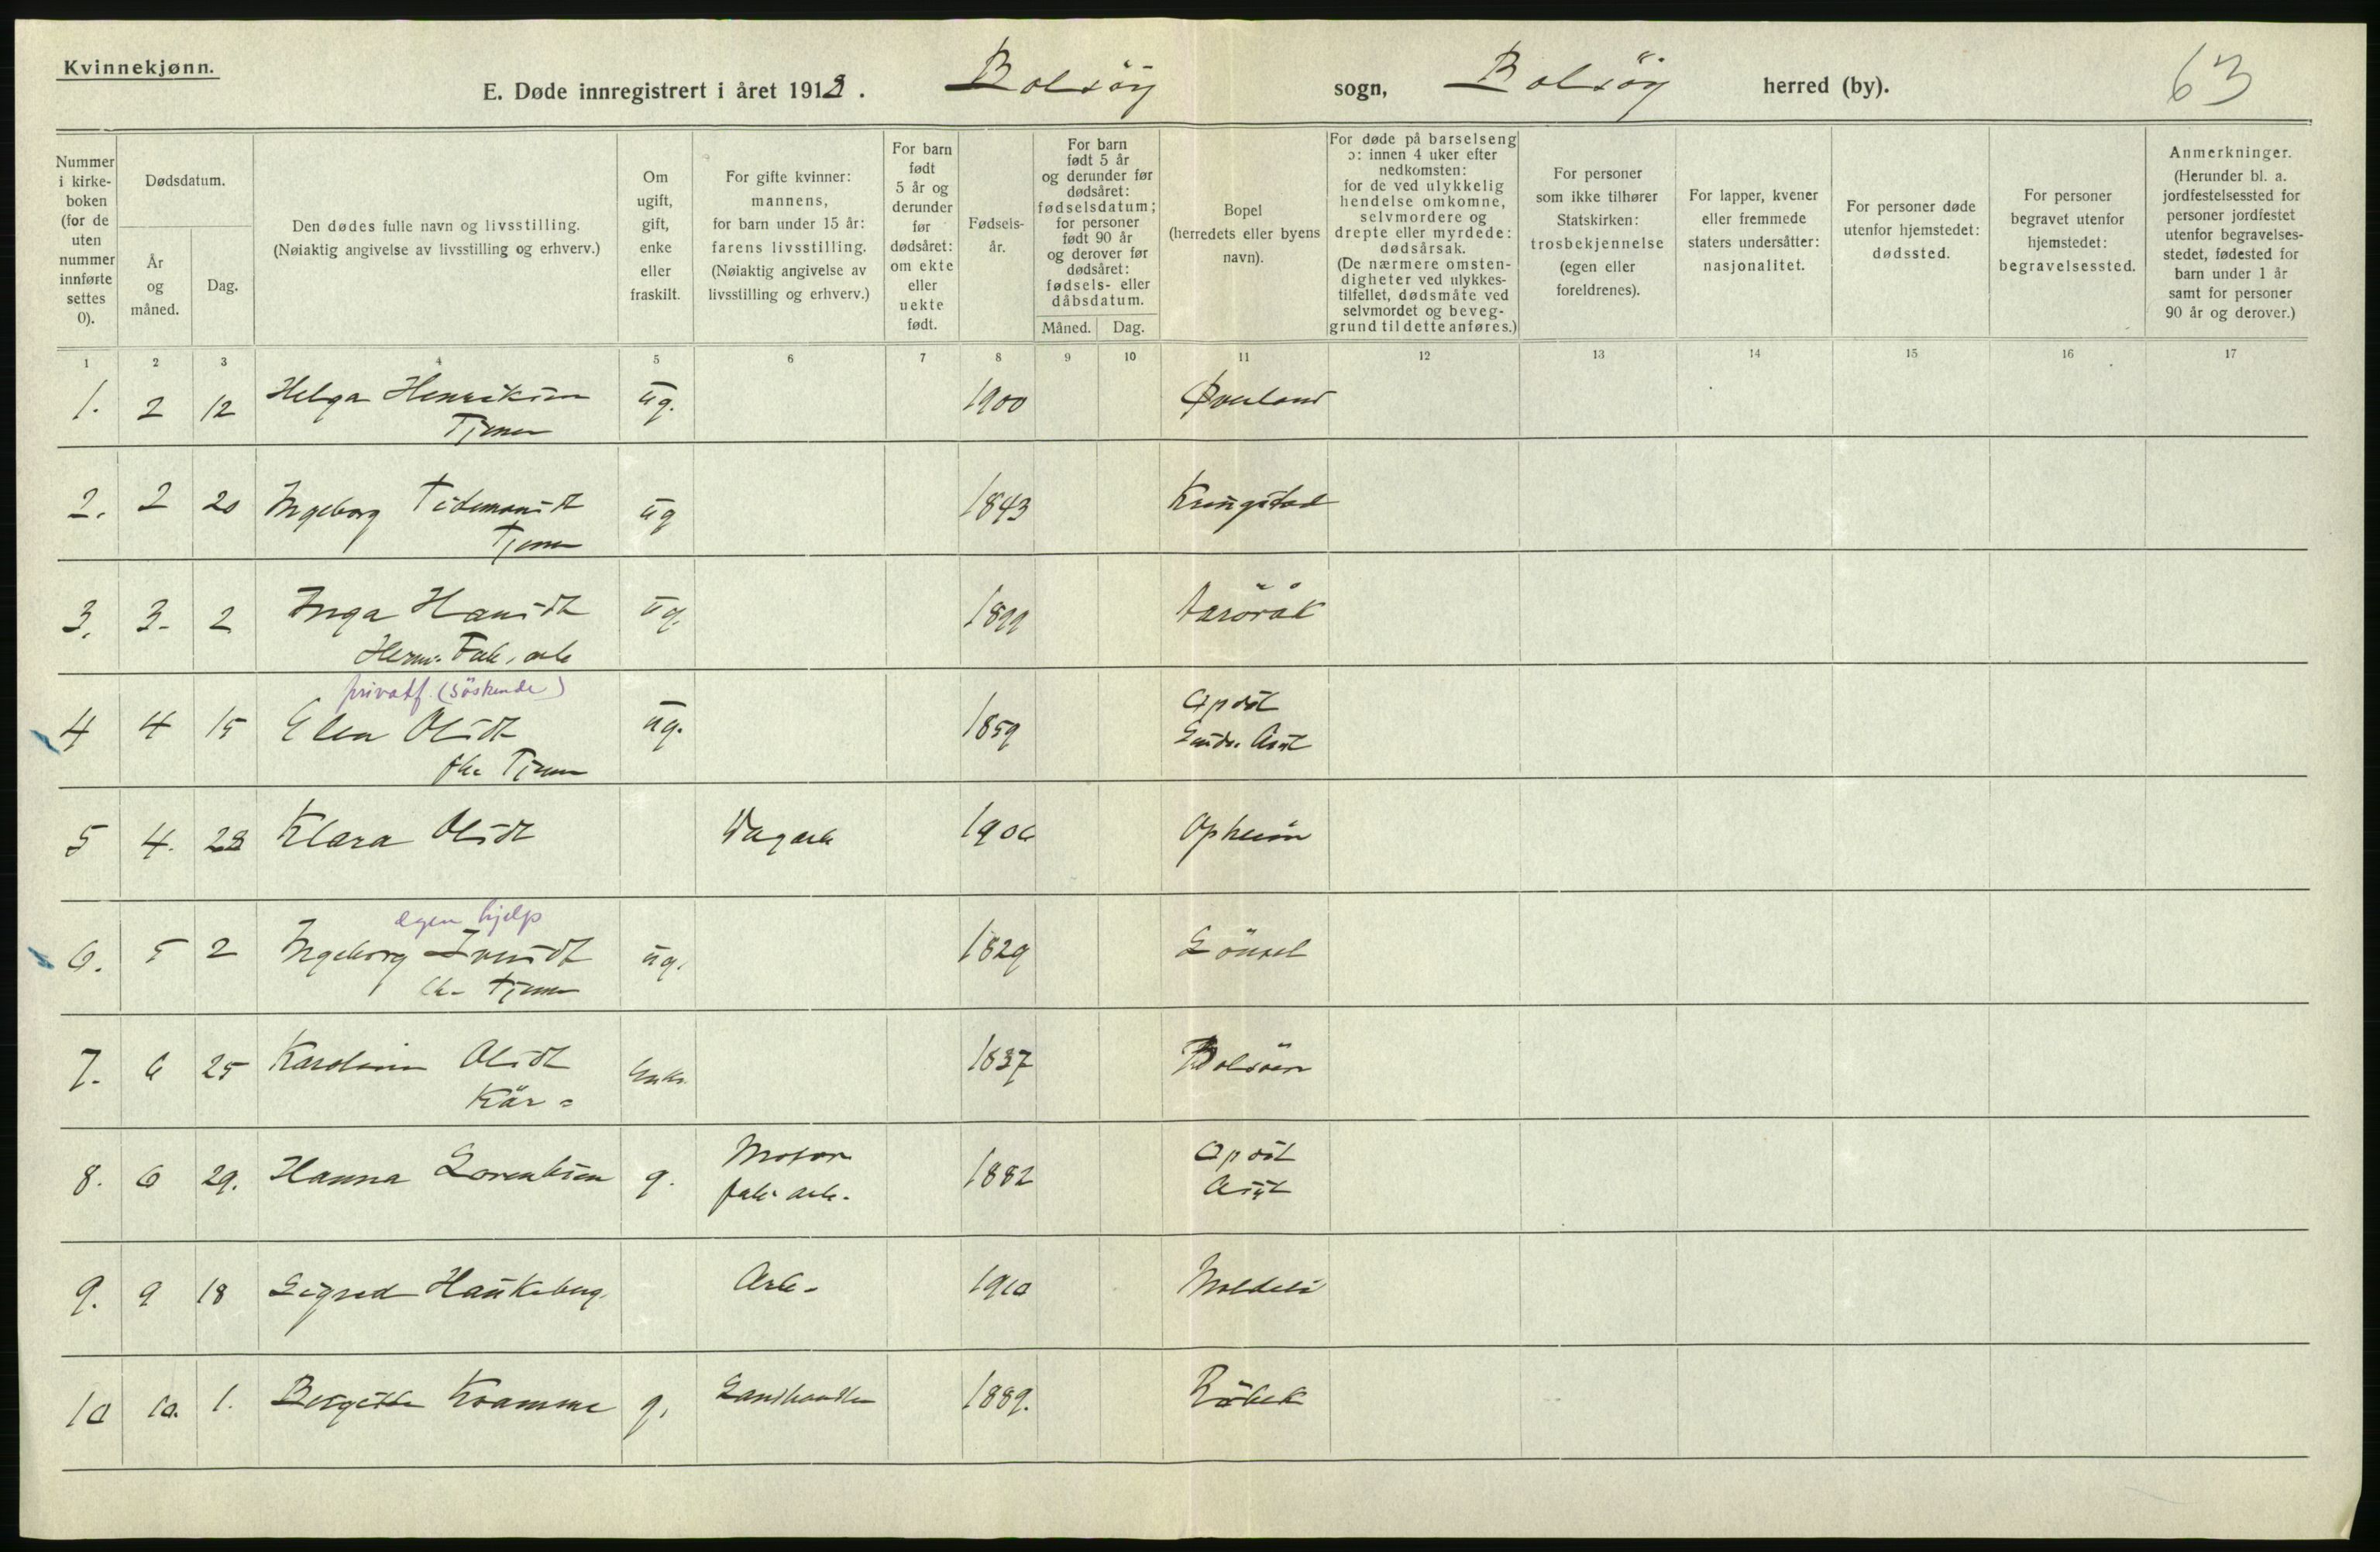 Kvinnekjønn.
E. Døde innregistrert i året 1912. Bolsöy sogn, Bolsöy herred (by).
63
Nummer i kirke- boken (for de uten nummer innførte settes 0).
Dødsdatum.
År og måned.
Dag.
Den dødes fulle navn og livsstilling. (Nøiaktig angivelse av livsstilling og erhverv.)
Om ugift, gift, enke eller fraskilt.
For gifte kvinner: mannens, for barn under 15 år: farens livsstilling. (Nøiaktig angivelse av livsstilling og erhverv.)
For barn født 5 år og derunder før dødsåret: om ekte eller uekte født.
Fødsels- år.
For barn født 5 år og derunder før dødsåret: fødselsdatum; for personer født 90 år og derover før dødsåret: fødsels- eller dåbsdatum.
Måned. Dag.
Bopel (herredets eller byens navn).
For døde på barselseng ɔ: innen 4 uker efter nedkomsten: for de ved ulykkelig hendelse omkomne, selvmordere og drepte eller myrdede: dødsårsak. (De nærmere omsten- digheter ved ulykkes- tilfellet, dødsmåte ved selvmordet og beveg- grund til dette anføres.)
For personer som ikke tilhører Statskirken: trosbekjennelse (egen eller foreldrenes).
For lapper, kvener eller fremmede staters undersåtter: nasjonalitet.
For personer døde utenfor hjemstedet: dødssted.
For personer begravet utenfor hjemstedet: begravelsessted.
Anmerkninger. (Herunder bl. a. jordfestelsessted for personer jordfestet utenfor begravelses- stedet, fødested for barn under 1 år samt for personer 90 år og derover.)
1 2 3 4 5 6 7 8 9 10 11 12 13 14 15 16 17
1. 2 12 Helga Henriksen ug. 1900 Øverland
Tjener
2. 2 20 Ingeborg Tidemansdt ug 1843 Kringstad
Tjener
3. 3. 2 Inga Hansdt ug. 1899 Aaröråk
Herm. Fab. arb
privatf. (Söskende)
4 4 15 Elen Olsdt ug. 1859 Opdöl
fhv Tjener
5 4. 28 Klara Olsdt 1906 Opheim
egen hjelp
6. 5 2 Ingeborg Iversdt ug. 1829 Lönset
fhv Tjener
7. 6 25 Karoline Olsdt Enke 1837 Bolsöen
Kår =
8. 6 29. Hanna Lorentsen g. Motor 1882 Opdöl
fab. arb.
9. 9 18 Sigrid Haukeberg. Arb. 1910 Moldeli
10 10. 1. Birgitte Kramme g. Landhandler 1889. Röbek